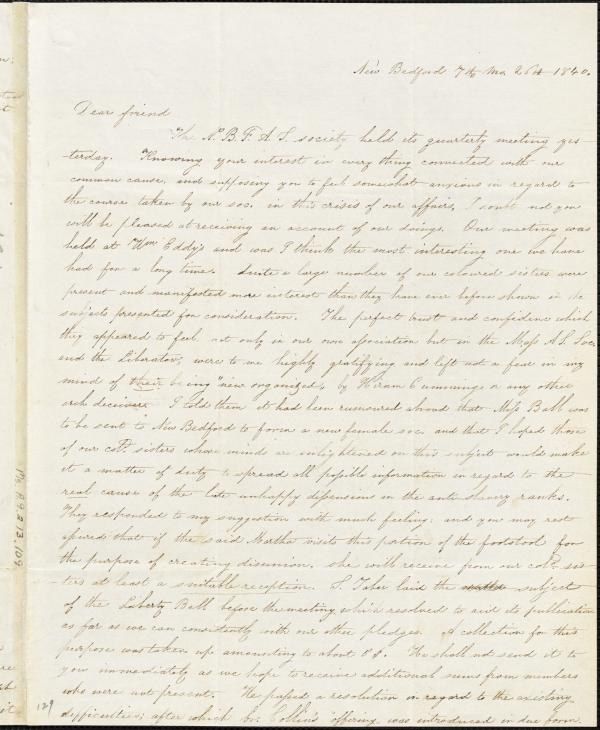 New Bedford 7th Mo 26th 1840.
Dear friend
The N. B. F. A. S. society held its quarterly meeting yes-
terday. Knowing your interest in every thing connected with our
common cause, and supposing you to feel somewhat anxious in regard to
the course taken by our soc. in this crisis of our affairs, I doubt not you
will be pleased at receiving an account of our doings. Our meeting was
held at Wm Eddy's and was I think the most interesting one we have
had for a long time. Quite a large number of our coloured sisters were
present and manifested more interest than they have ever before shown in the
subjects presented for consideration. The perfect trust and confidence which
they appeared to feel, not only in our own association but in the Mass A S. Soc.
and the Liberator, were to me highly gratifying and left not a fear in my
mind of their being "new organized", by Hiram Cummings or any other
arch deceiver. I told them it had been rumoured abroad that Miss Ball was
to be sent to New Bedford to form a new female soc. and that I hoped those
of our cold. sisters whose minds are enlightened on this subject would make
it a matter of duty to spread all possible information in regard to the
real cause of the late unhappy dissensions in the anti slavery ranks.
They responded to my suggestion with much feeling; and you may rest
assured that if the said Martha visits this portion of the footstool for
the purpose of creating disunion, she will receive from our cold. sis-
ters at least a suitable reception. S. Taber laid the subject
of the Liberty Bell before the meeting which resolved to aid its publication
as far as we can consistently with our other pledges. A collection for this
purpose was taken up amounting to about 8 $. We shall not send it to
you immediately as we hope to receive additional sums from members
who were not present. We passed a resolution in regard to the existing
difficulties; after which br. Collins' offering was introduced in due form.
129